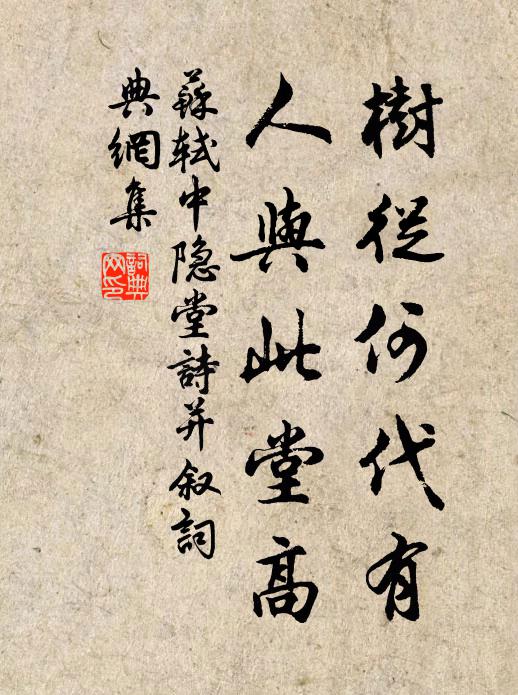 樹從何代有
人與此堂高
蘇軾中隐堂詩并叙詞
典網集
詞典網印